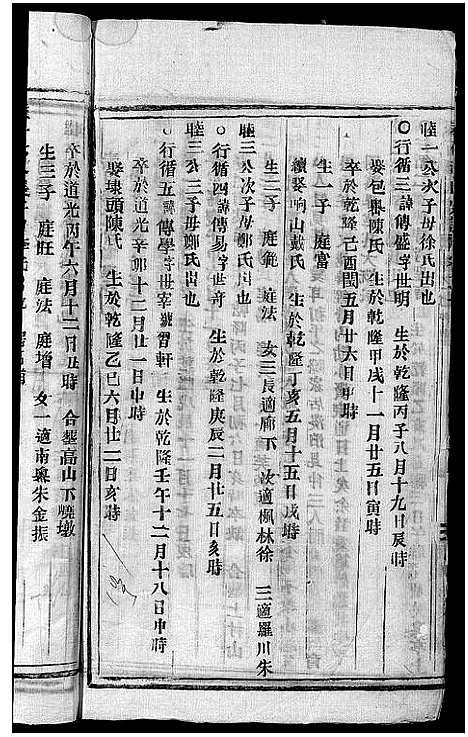 睦一公次子母徐氏出也
○行循三諱傳盛字世明 生於乾隆丙子八月十九日辰時
娶包𡼏陳氏 生於乾隆甲戌十一月廿五日寅時
卒於乾隆己酉閏五月廿六日申時
生一子 庭富
續娶响山戴氏 生於乾隆丁亥五月十五日戌時
生二子 庭範 庭法 女三長適廊下 次適楓林徐 三適羅川朱
睦三公次子母鄭氏出也
○行循四諱傳易字世奇 生於乾隆庚辰二月廿五日亥時
睦三公三子母鄭氏出也
○行循五諱傳學字世宰號習軒 生於乾隆壬午十二月十八日申時
卒於道光辛卯十二月廿一日申時
娶埭頭陳氏 生於乾隆乙巳六月廿二日亥時
卒於道光丙午六月十二日丑時 合塟高山下燒墩
生三子 庭旺 庭法 庭增 女一適南奧朱金振